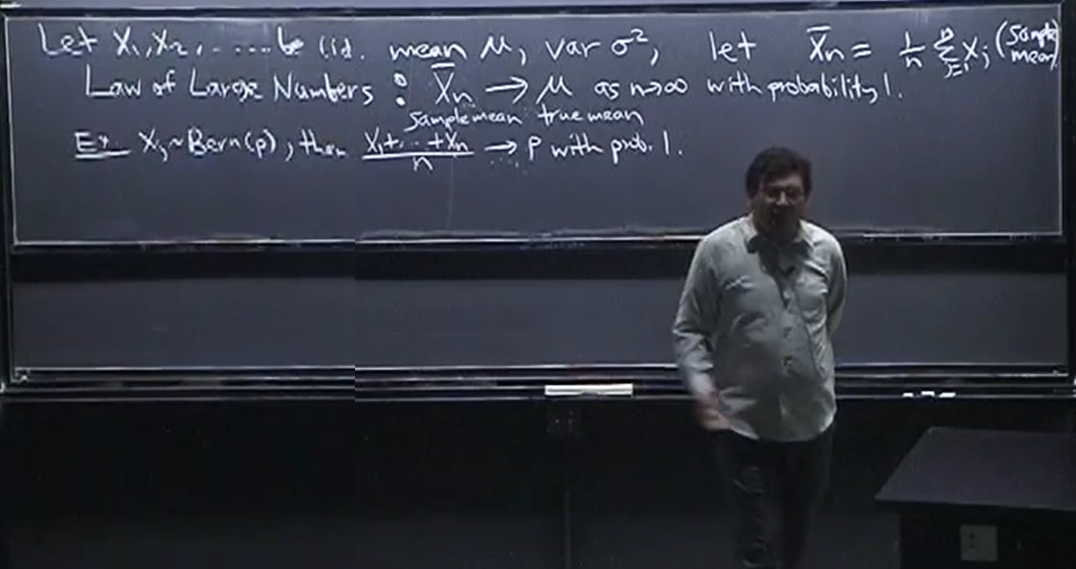 Let X₁, X₂, ..... be iid. mean μ, var σ², let X̄n = 1/n Σ_{j=1}^{n} Xj (sample mean)
Law of Large Numbers: X̄n → μ as n→∞ with probability 1.
sample mean true mean
Ex. Xj ~ Bern(p), then (X₁+...+Xn)/n → p with prob. 1.